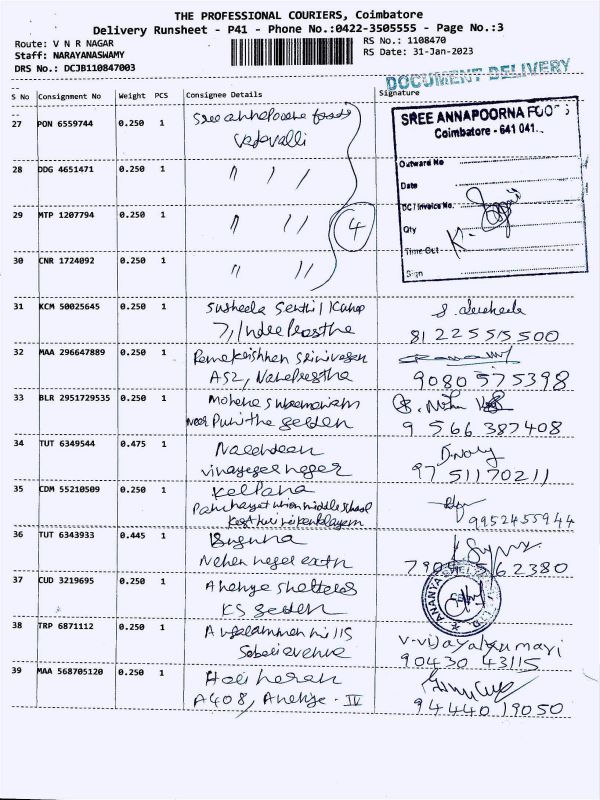 THE PROFESSIONAL COURIERS, Coimbatore
Delivery Runsheet - P41 - Phone No.:0422-3505555 - Page No.:3
Route: V N R NAGAR
RS No.: 1108470
Staff: NARAYANASWAMY
RS Date: 31-Jan-2023
DRS No.: DCJB110847003
DOCUMENT DELIVERY
S No Consignment No Weight PCS Consignee Details Signature
27 PON 6559744 0.250 1 Sree annapoorna foods
Vadavalli
SREE ANNAPOORNA FOODS
Coimbatore - 641 041.
Outward No
Date
DC / Invoice No.
Qty
Time Out
Sign
28 DDG 4651471 0.250 1 " / /
29 MTP 1207794 0.250 1 " //
4
30 CNR 1724092 0.250 1 " //
31 KCM 50025645 0.250 1 Susheela Senthil Kumar
7, Indraprastha
81225515500
32 MAA 296647889 0.250 1 Ramakrishnan Srinivasan
A52, Nanaprastha
9080575398
33 BLR 2951729535 0.250 1 Mohana Subramaniam
near Punitha garden
9566387408
34 TUT 6349544 0.475 1 Naveen
vinayagar nagar
9751170211
35 CDM 55210509 0.250 1 Kalpana
Panchayat union middle school
9952455944
36 TUT 6343933 0.445 1 Suguna
Nehru nagar extn
62380
37 CUD 3219695 0.250 1 Ananya Shelters
KS garden
ANANYA
38 TRP 6871112 0.250 1 Angalamman hills
Sabari avenue
V. Vijayalkumari
90430 43115
39 MAA 568705120 0.250 1 Hariharan
A408, Ananya - IV
94440 19050